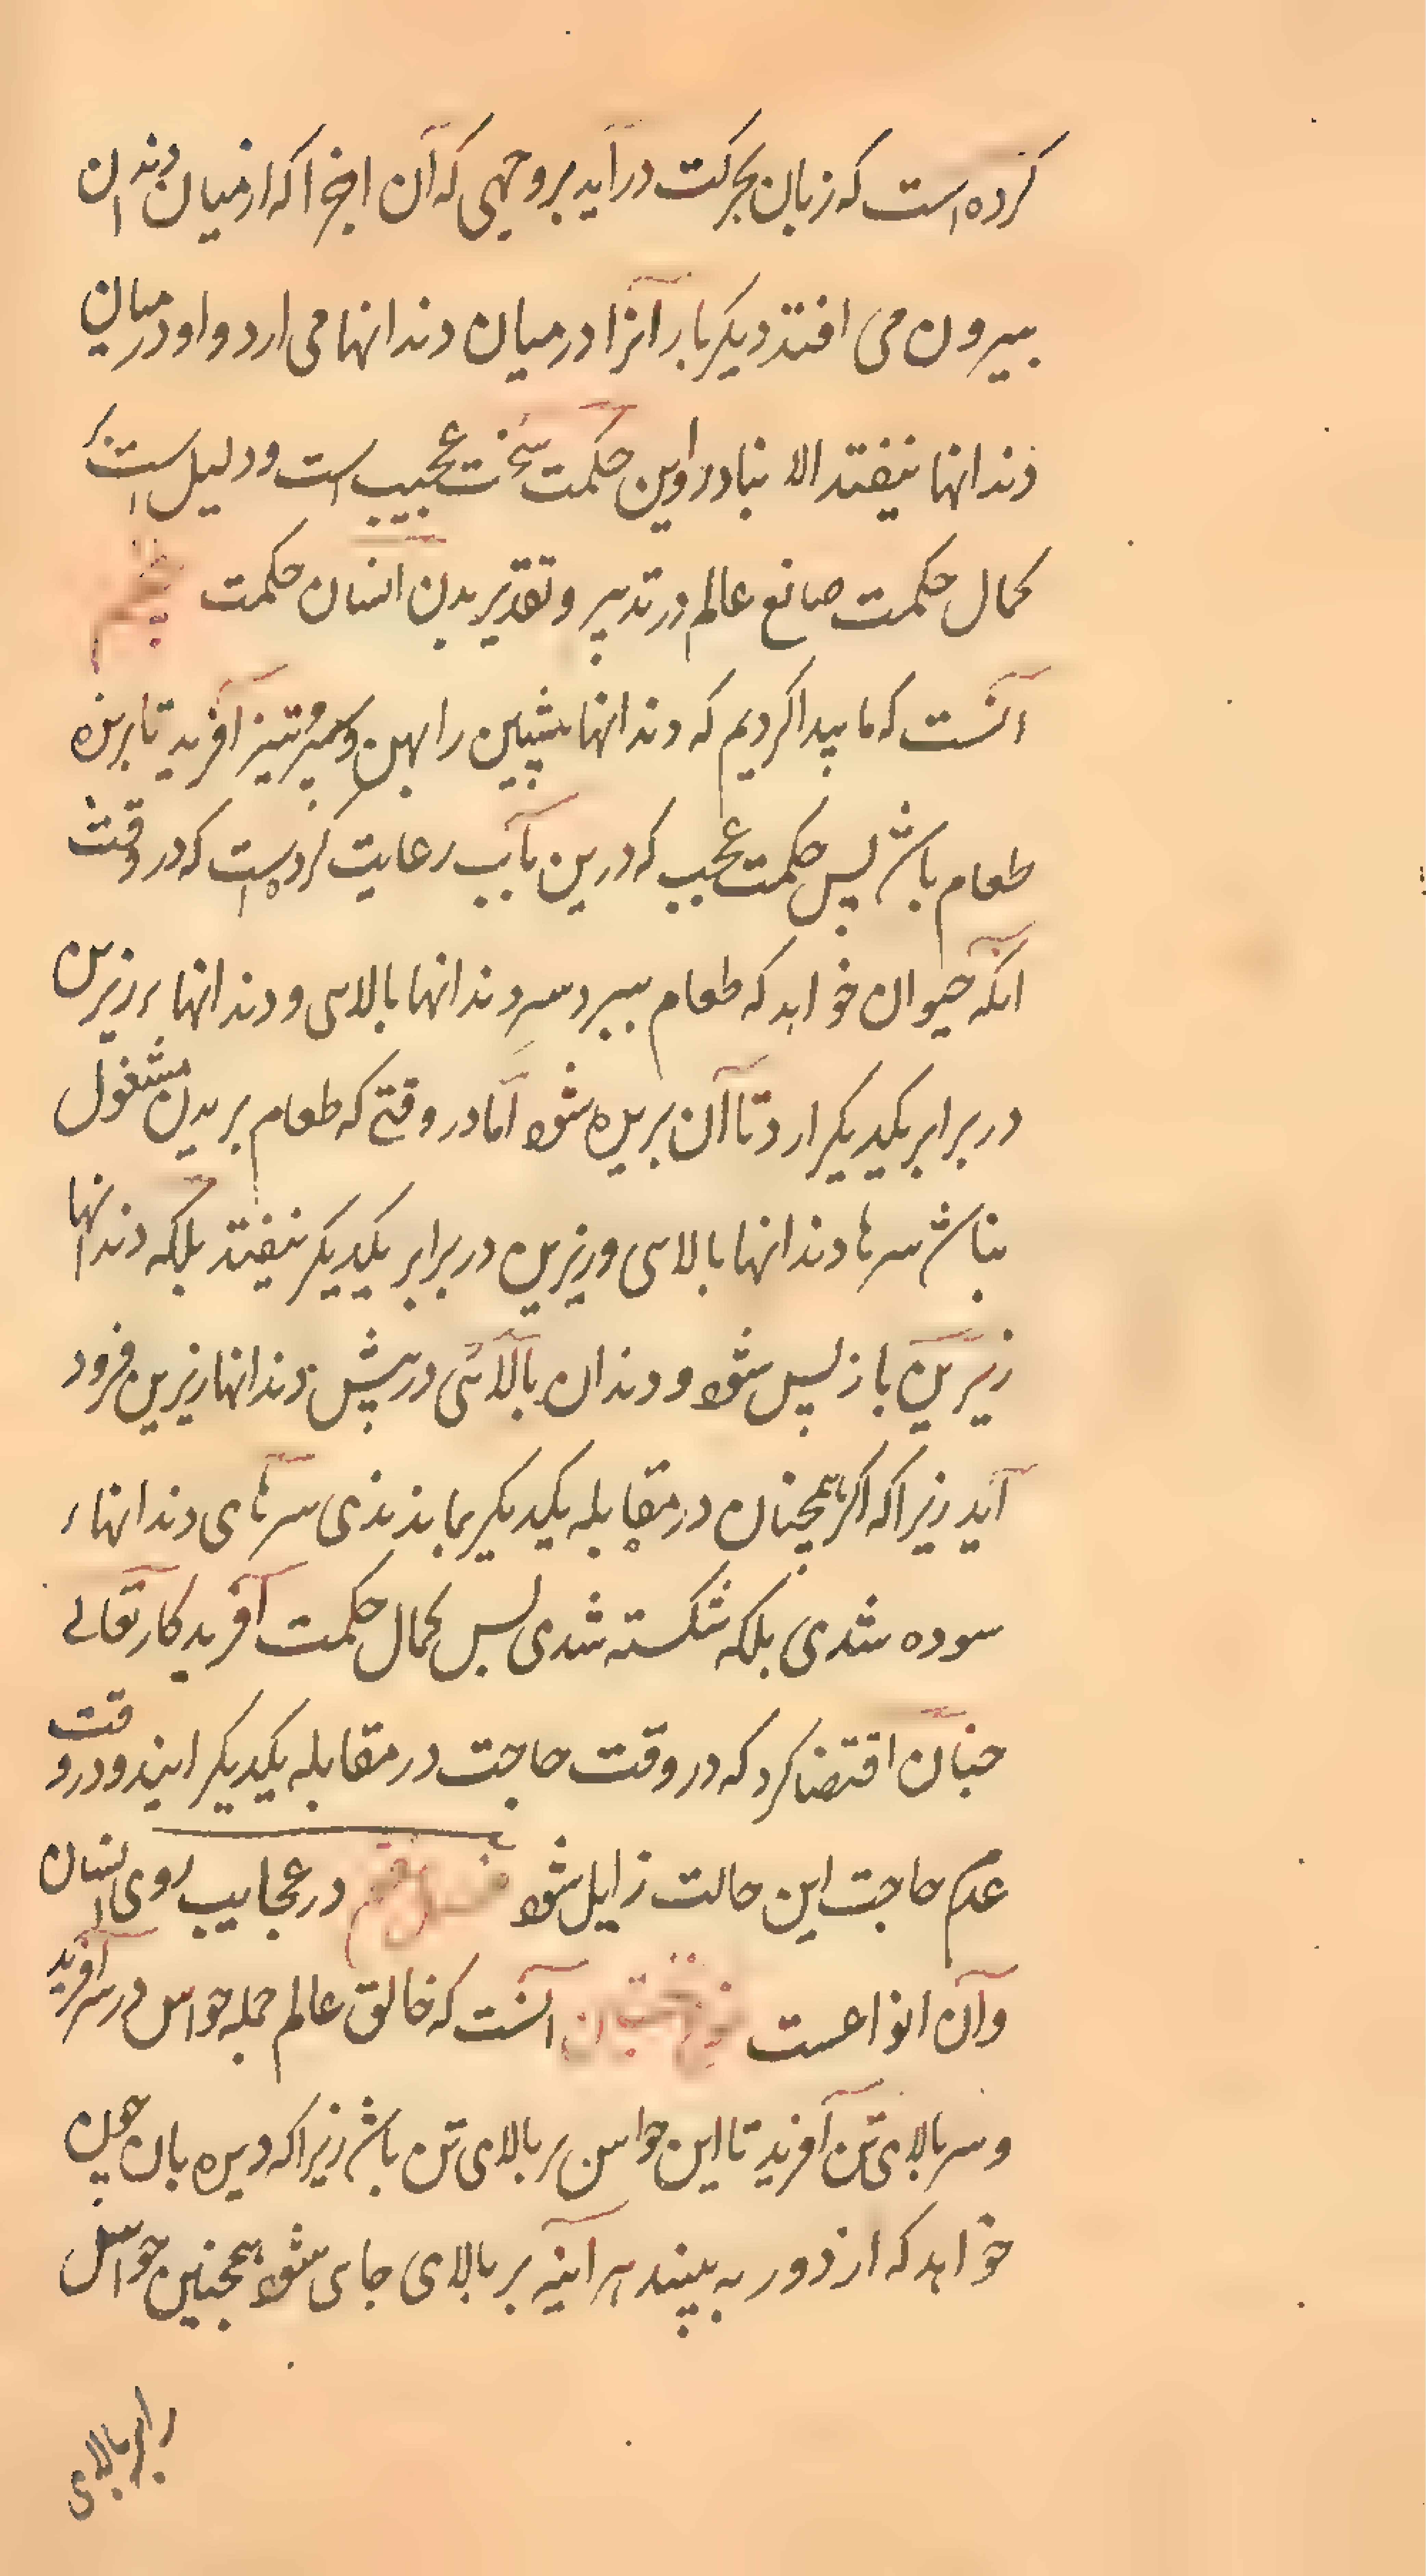 کرده است که زبان بحرکت درآید بر وجهی که آن اجزا که از میان دندان
بیرون می افتد دیکر بار آنرا در میان دندانها می ارد و او در میان
دندانها نیفتد الا بنادر و این حکمت سخت عجیب است و دلیل است بر
کمال حکمت صانع عالم در تدبیر و تقدیر بدن انسان حکمت پنجم
آنست که ما پیدا کردیم که دندانها پیشین را پهن و سر تیز آفرید تا برنده
طعام باشد پس حکمت عجب که درین باب رعایت کرده است که در وقت
انکه حیوان خواهد که طعام ببرد سر دندانها بالایی و دندانهاء زیرین
در برابر یکدیکر ارد تا آن بریده شود اما در وقتی که طعام بریدن مشغول
نباشد سرها دندانها بالایی و زیرین در برابر یکدیکر نیفتد بلکه دندانها
زیرین باز پس شود و دندان بالائی در پیش دندانها زیرین فرود
آید زیرا که اکر همچنان در مقابله یکدیکر بماندندی سرهای دندانهاء
سوده شدی بلکه شکسته شدی پس کمال حکمت آفریدکار تعالی
چنان اقتضا کرد که در وقت حاجت در مقابله یکدیکر ایند و در وقت
عدم حاجت این حالت زایل شود فصل در عجایب روی انسان
و آن انواعست نوع نخستین آنست که خالق عالم جمله حواس در سر آفرید
و سر بالای تن آفرید تا این حواس بر بالای تن باشد زیرا که دیده بان چون
خواهد که از دور به بیند هر اینه بر بالای جای شود همچنین حواس
را بر بالای